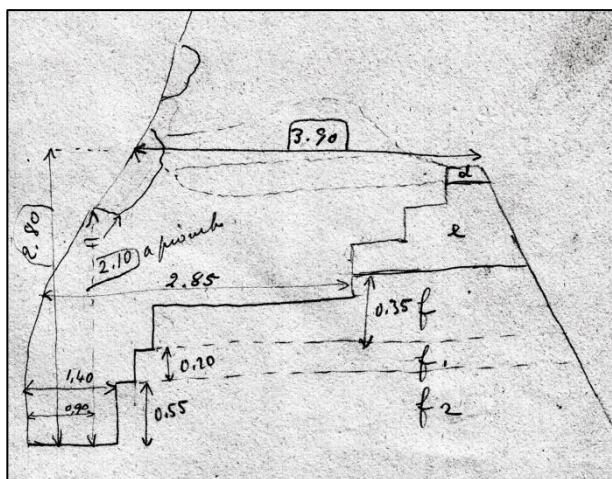 3.90
d
2.80
e
2.10 a piombo
2.85
0.35 f
0.20 f1
1.40
0.90
0.55 f2